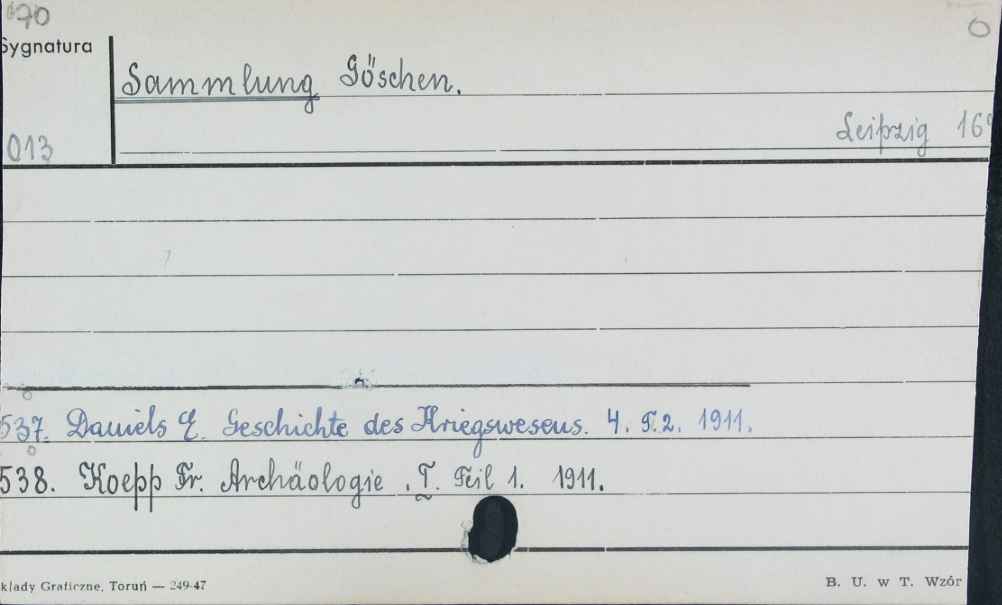 70
Sygnatura
Sammlung Göschen.
Leipzig 16°
013
537. Daniels E. Geschichte des Kriegswesens. 4. T.2. 1911.
538. Koepp Fr. Archäologie . T. Teil 1. 1911.
kłady Graficzne, Toruń — 249-47
B. U. w T. Wzór